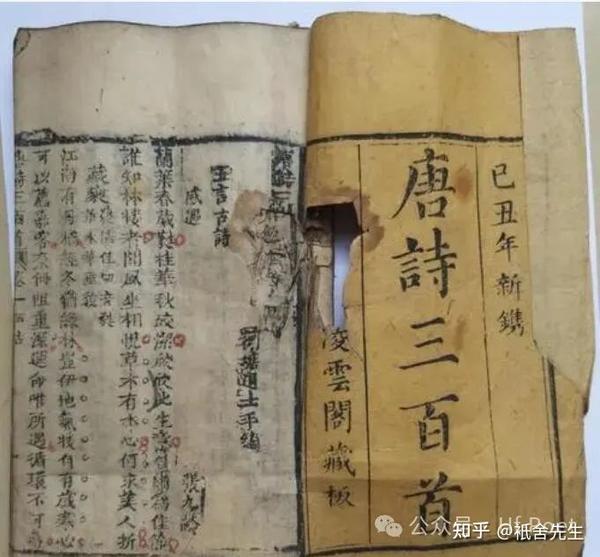 己丑年新鐫
唐詩三百首
凌雲閣藏板
蘅塘退士手編
五言古詩
感遇
張九齡
蘭葉春葳蕤桂華秋皎潔欣欣此生意自爾為佳節
誰知林棲者聞風坐相悅草木有本心何求美人折
江南有丹橘經冬猶綠林豈伊地氣暖自有歲寒心
可以薦嘉客奈何阻重深運命唯所遇循環不可尋
唐詩三百首
公众号
知乎 @祇舍先生